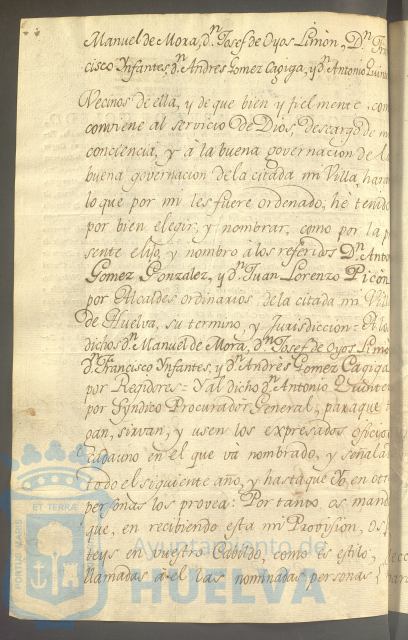 Manuel de Mora, dⁿ Josef de Oyos Limon, Dⁿ Fran
cisco Ynfantes, dⁿ Andres Gomez Cagiga, y dⁿ Antonio Quint
Vecinos de ella, y de que bien y fielmente, con
conviene al servicio de Dios, descargo de mi
conciencia, y à la buena governacion de la
buena governacion de la citada mi Villa, haran
lo que por mi les fuere ordenado, he tenido
por bien elegir, y nombrar, como por la p
sente elijo, y nombro à los referidos Dⁿ Anto
Gomez Gonzalez, y dⁿ Juan Lorenzo Picon
por Alcaldes ordinarios de la citada mi Vill
de Huelva, su termino, y Jurisdiccion= A los
dichos dⁿ Manuel de Mora, dⁿ Josef de Oyos Limo
dⁿ Francisco Ynfantes, y dⁿ Andrès Gomez Cagiga
por Regidores= Y al dicho dⁿ Antonio Quinte
por Syndico Procurador General, para que t
gan, sirvan, y usen los expresados oficios
cada uno en el que va nombrado, y señala
todo el siguiente año, y hasta que Yo, en otr
personas los provea: Por tanto os mand
que, en recibiendo esta mi Provision, os
teys en vuestro Cabildo, como es estilo,
llamadas à el las nominadas personas
ET TERRÆ
PORTUS MARIS
Ayuntamiento de
HUELVA